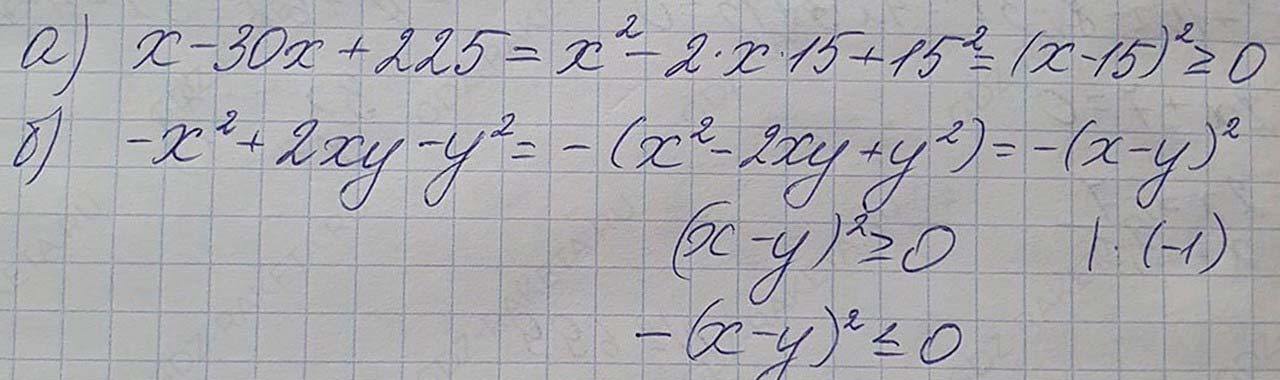 а) x - 30x + 225 = x² - 2·x·15 + 15² = (x - 15)² ≥ 0
б) -x² + 2xy - y² = - (x² - 2xy + y²) = - (x - y)²
(x - y)² ≥ 0 | · (-1)
- (x - y)² ≤ 0